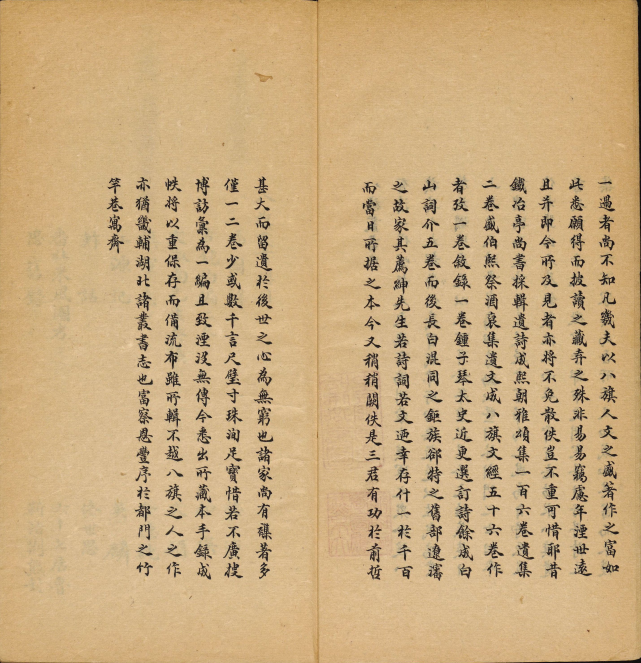 一遇者尚不知凡幾夫以八旗人文之盛著作之富如
此悉願得而披讀之藏弆之殊非易易竊慮年湮世遠
且并即令所及見者亦將不免散佚豈不重可惜耶昔
鐵冶亭尚書採輯遺詩成熙朝雅頌集一百六卷遺集
二卷盛伯熙祭酒裒集遺文成八旗文經五十六卷作
者攷一卷敘錄一卷鍾子琴太史近更選訂詩餘成白
山詞介五卷而後長白混同之鉅族部特之舊部遼瀋
之故家其薦紳先生若詩詞若文迺幸存什一於千百
而當日所據之本今又稍稍闕佚是三君有功於前哲
甚大而留遺於後世之心為無窮也諸家尚有襍著多
僅一二卷少或數千言尺璧寸珠洵足寶惜若不廣搜
博訪彙為一編且致湮沒無傳今悉出所藏本手錄成
帙將以重保存而備流布雖所輯不越八旗之人之作
亦猶畿輔湖北諸叢書志也富察恩豐序於都門之竹
竿巷寓齋